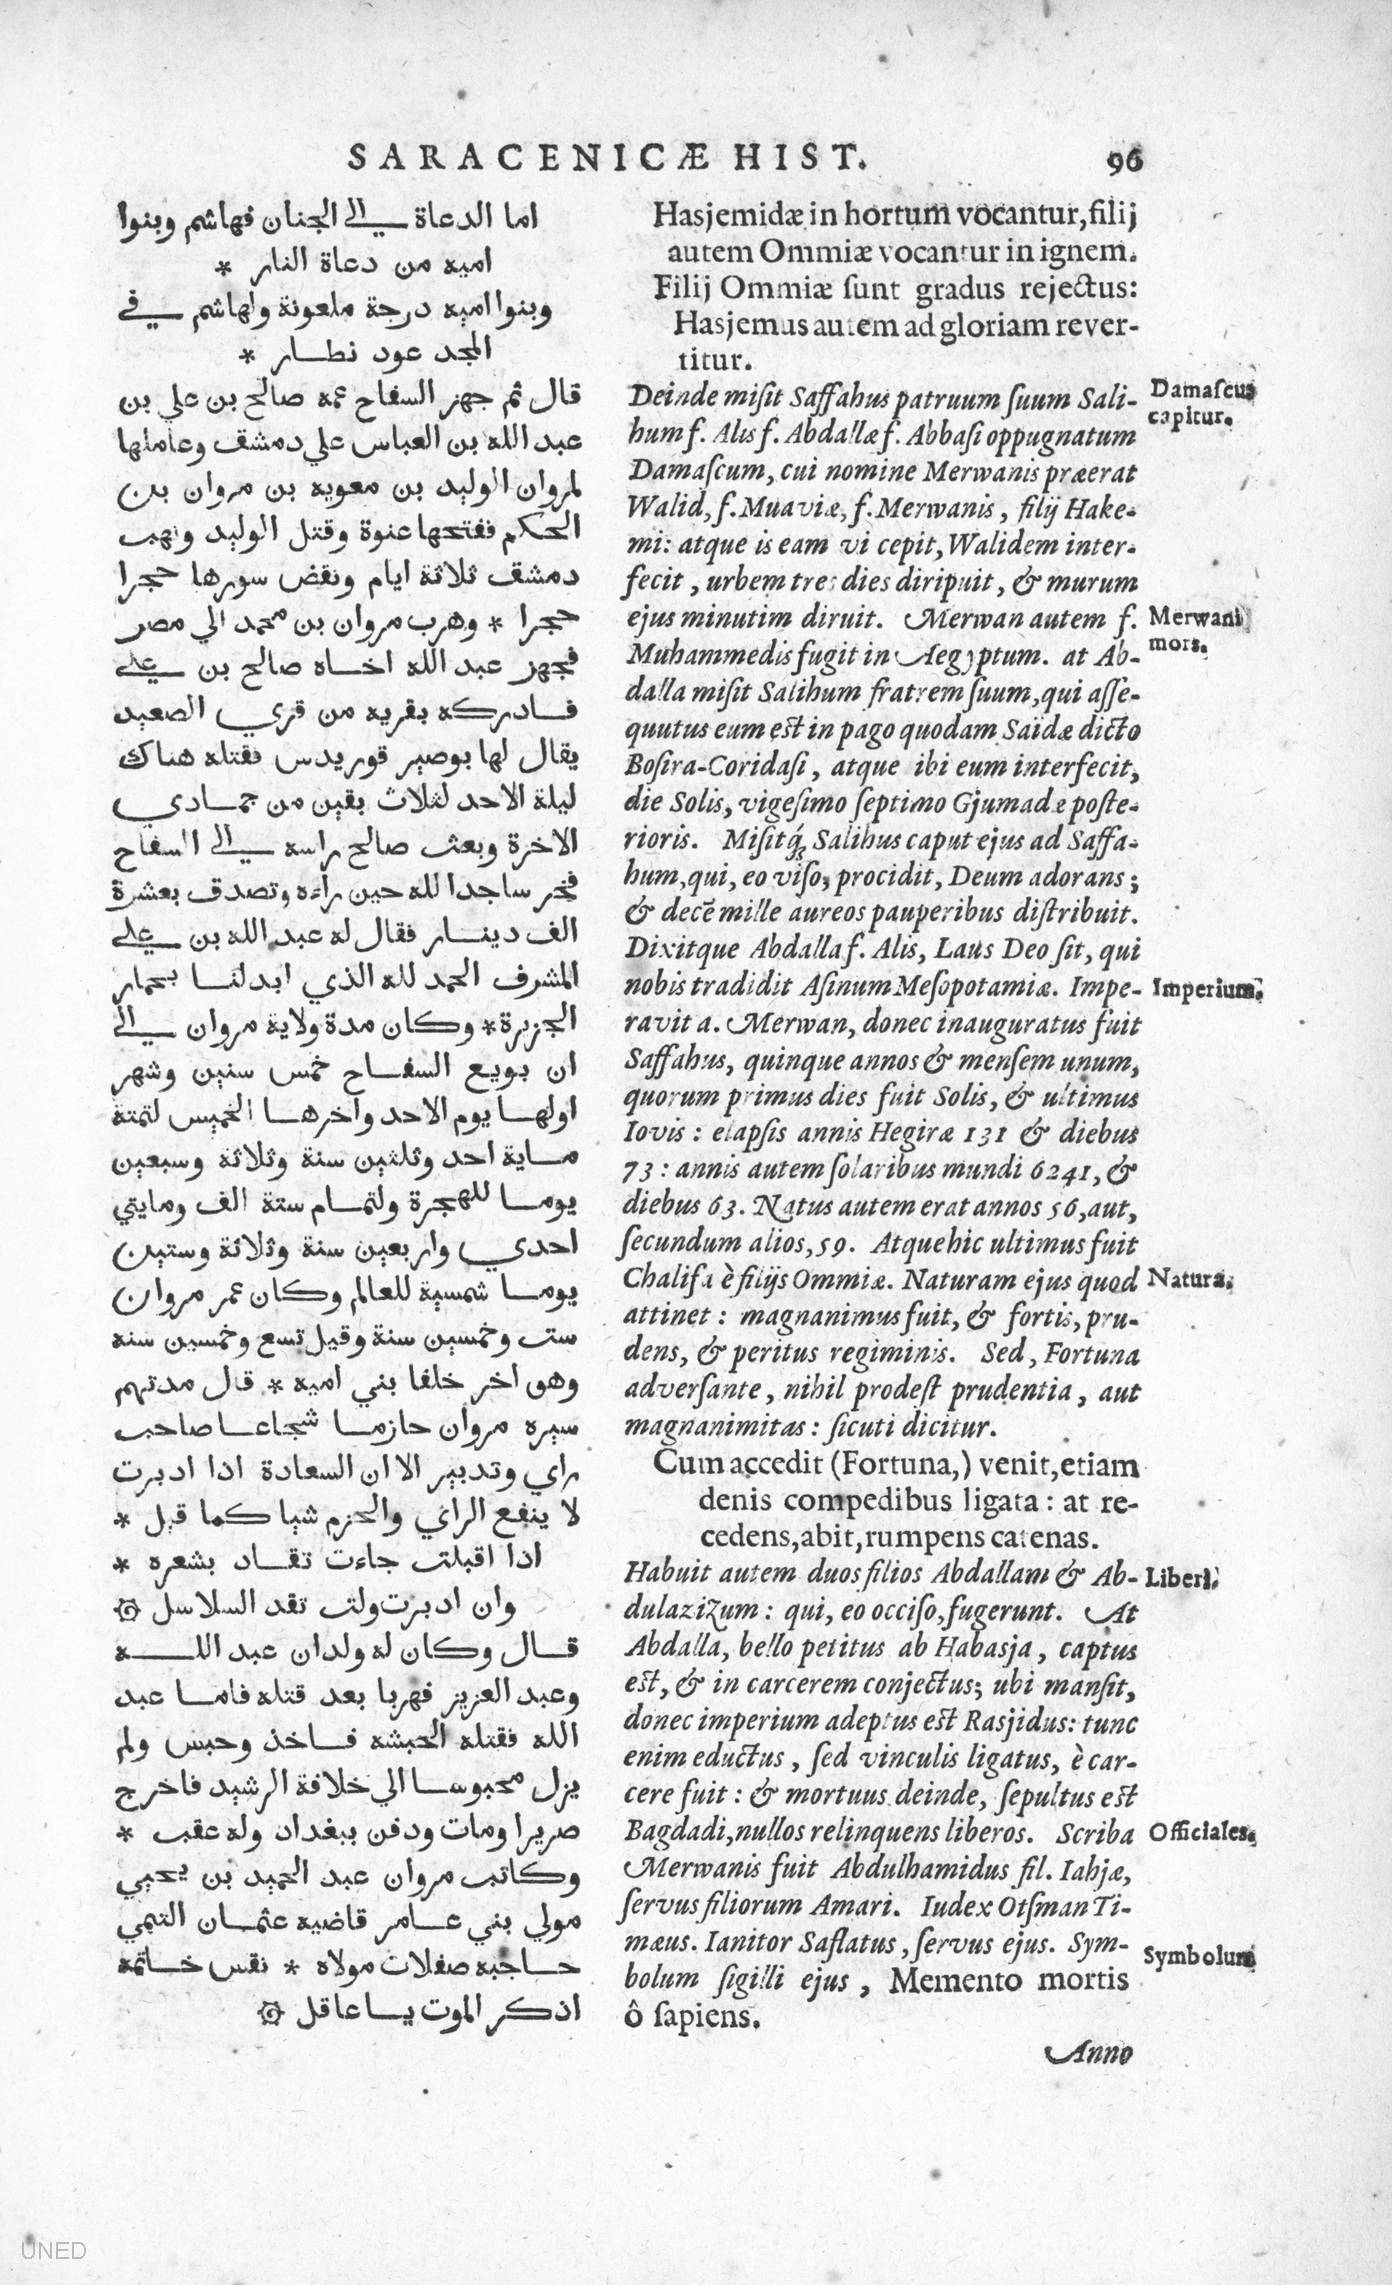 SARACENICÆ HIST. 96
اما الدعاة الي الجنان فهاشم وبنوا
اميه من دعاة النار *
وبنوا اميه درجة ملعونة ولهاشم في
المجد عود نطار *
قال ثم جهز السفاح عمه صالح بن علي بن
عبد الله بن العباس علي دمشق وعاملها
لمروان الوليد بن معويه بن مروان بن
الحكم ففتحها عنوة وقتل الوليد ونهب
دمشق ثلاثة ايام ونقض سورها حجرا
حجرا * وهرب مروان بن محمد الي مصر
فجهز عبد الله اخاه صالح بن علي
فادركه بقريه من قري الصعيد
يقال لها بوصير قوريدس فقتله هناك
ليلة الاحد لثلاث بقين من جمادي
الاخرة وبعث صالح راسه الي السفاح
فخر ساجدا لله حين راءه وتصدق بعشرة
الف دينار فقال له عبد الله بن علي
المشرف الحمد لله الذي ابدلنا بحمار
الجزيرة * وكان مدة ولاية مروان الي
ان بويع السفاح خمس سنين وشهر
اولها يوم الاحد واخرها الخميس لتمتة
ماية احد وثلثين سنة وثلاثة وسبعين
يوما للهجرة ولتمام ستة الف ومايتي
احدي واربعين سنة وثلاثة وستين
يوما شمسية للعالم وكان عمر مروان
ست وخمسين سنة وقيل تسع وخمسين سنه
وهو اخر خلفا بني اميه * قال مدتهم
سيره مروان حازما شجاعا صاحب
راي وتدبير الا ان السعادة اذا ادبرت
لا ينفع الراي والحزم شيا كما قيل *
اذا اقبلت جاءت تقاد بشعره *
وان ادبرت ولت تقد السلاسل
قال وكان له ولدان عبد الله
وعبد العزيز فهربا بعد قتله فاما عبد
الله فقتله الحبشه فاخذ وحبس ولم
يزل محبوسا الي خلافة الرشيد فاخرج
صريرا ومات ودفن ببغداد وله عقب *
وكاتب مروان عبد الحميد بن يحيي
مولي بني عامر قاضيه عثمان التيمي
حاجبه صفلات مولاه * نقس خاتمه
اذكر الموت يا عاقل
Hasjemidæ in hortum vocantur, filij
autem Ommiæ vocantur in ignem.
Filij Ommiæ sunt gradus rejectus:
Hasjemus autem ad gloriam rever-
titur.
Deinde misit Saffahus patruum suum Sali-
hum f. Alis f. Abdallæ f. Abbasi oppugnatum
Damascum, cui nomine Merwanis præerat
Walid, f. Muaviæ, f. Merwanis, filij Hake-
mi: atque is eam vi cepit, Walidem inter-
fecit, urbem tres dies diripuit, & murum
ejus minutim diruit. Merwan autem f.
Muhammedis fugit in Aegyptum. at Ab-
dalla misit Salihum fratrem suum, qui asse-
quutus eum est in pago quodam Saidæ dicto
Bosira-Coridasi, atque ibi eum interfecit,
die Solis, vigesimo septimo Gjumadæ poste-
rioris. Misitq́ꝫ Salihus caput ejus ad Saffa-
hum, qui, eo viso, procidit, Deum adorans;
& decẽ mille aureos pauperibus distribuit.
Dixitque Abdalla f. Alis, Laus Deo sit, qui
nobis tradidit Asinum Mesopotamiæ. Impe-
ravit a. Merwan, donec inauguratus fuit
Saffahus, quinque annos & mensem unum,
quorum primus dies fuit Solis, & ultimus
Iovis: elapsis annis Hegiræ 131 & diebus
73: annis autem solaribus mundi 6241, &
diebus 63. Natus autem erat annos 56, aut,
secundum alios, 59. Atque hic ultimus fuit
Chalifa è filijs Ommiæ. Naturam ejus quod
attinet: magnanimus fuit, & fortis, pru-
dens, & peritus regiminis. Sed, Fortuna
adversante, nihil prodest prudentia, aut
magnanimitas: sicuti dicitur.
Cum accedit (Fortuna,) venit, etiam
denis compedibus ligata: at re-
cedens, abit, rumpens catenas.
Habuit autem duos filios Abdallam & Ab-
dulazizum: qui, eo occiso, fugerunt. At
Abdalla, bello petitus ab Habasja, captus
est, & in carcerem conjectus; ubi mansit,
donec imperium adeptus est Rasjidus: tunc
enim eductus, sed vinculis ligatus, è car-
cere fuit: & mortuus deinde, sepultus est
Bagdadi, nullos relinquens liberos. Scriba
Merwanis fuit Abdulhamidus fil. Iahjæ,
servus filiorum Amari. Iudex Otsman Ti-
mæus. Ianitor Saflatus, servus ejus. Sym-
bolum sigilli ejus, Memento mortis
ô sapiens.
Anno
Damascus
capitur.
Merwani
mors.
Imperium.
Natura.
Liberi.
Officiales.
Symbolum
UNED